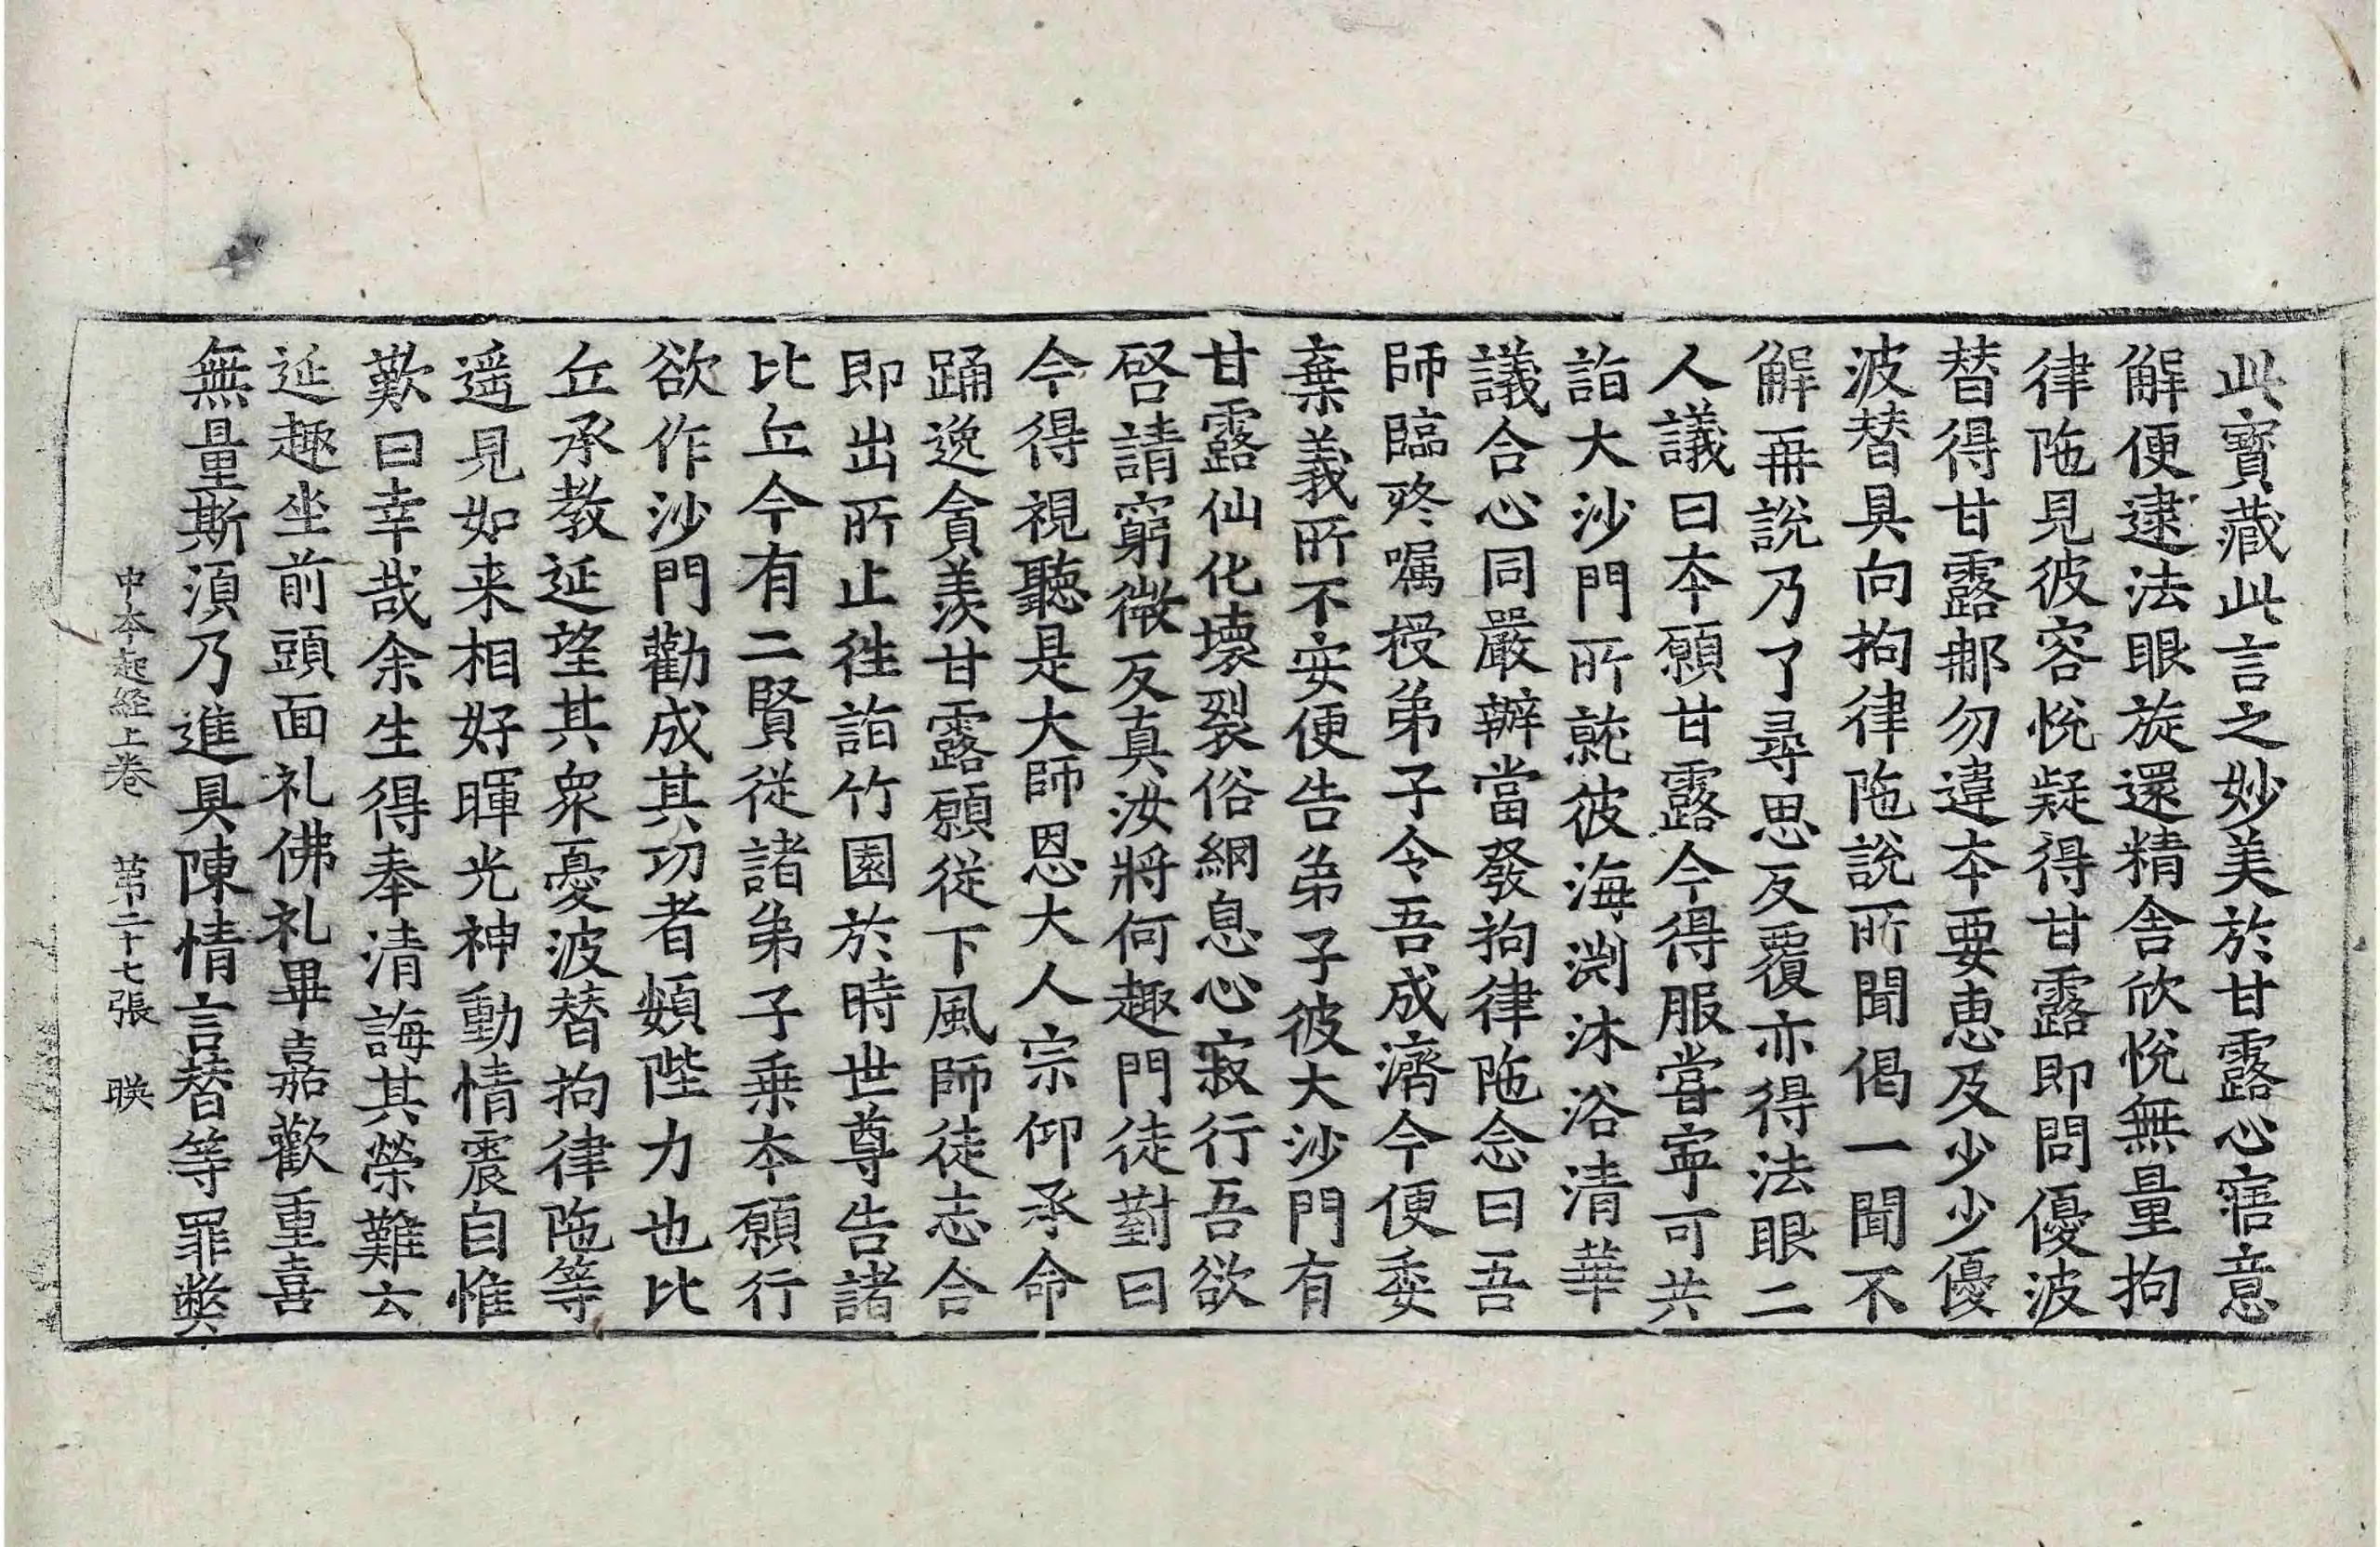 此寶藏此言之妙美於甘露心寤意
解便逮法眼旋還精舍欣悅無量拘
律陁見彼容悅疑得甘露即問優波
替得甘露郍勿違本要恵及少少優
波替具向拘律陁說所聞偈一聞不
解再說乃了尋思反覆亦得法眼二
人議曰本願甘露今得服甞寜可共
詣大沙門所就彼海渕沐浴清華
議合心同嚴辦當發拘律陁念曰吾
師臨終囑授弟子令吾成濟今便委
棄義所不安便告弟子彼大沙門有
甘露仙化壞裂俗網息心寂行吾欲
啓請窮微反真汝將何趣門徒對曰
今得視聽是大師恩大人宗仰承命
踊逸貪羨甘露願從下風師徒志合
即出所止徃詣竹園於時世尊告諸
比丘今有二賢從諸弟子乗本願行
欲作沙門勸成其功者頞陛力也比
丘承教延望其衆憂波替拘律陁等
遥見如来相好暉光神動情震自惟
歎曰幸哉余生得奉清誨其榮難云
延趣坐前頭面礼佛礼畢嘉歡重喜
無量斯須乃進具陳情言替等罪弊
中本起經上卷 第二十七張 暎